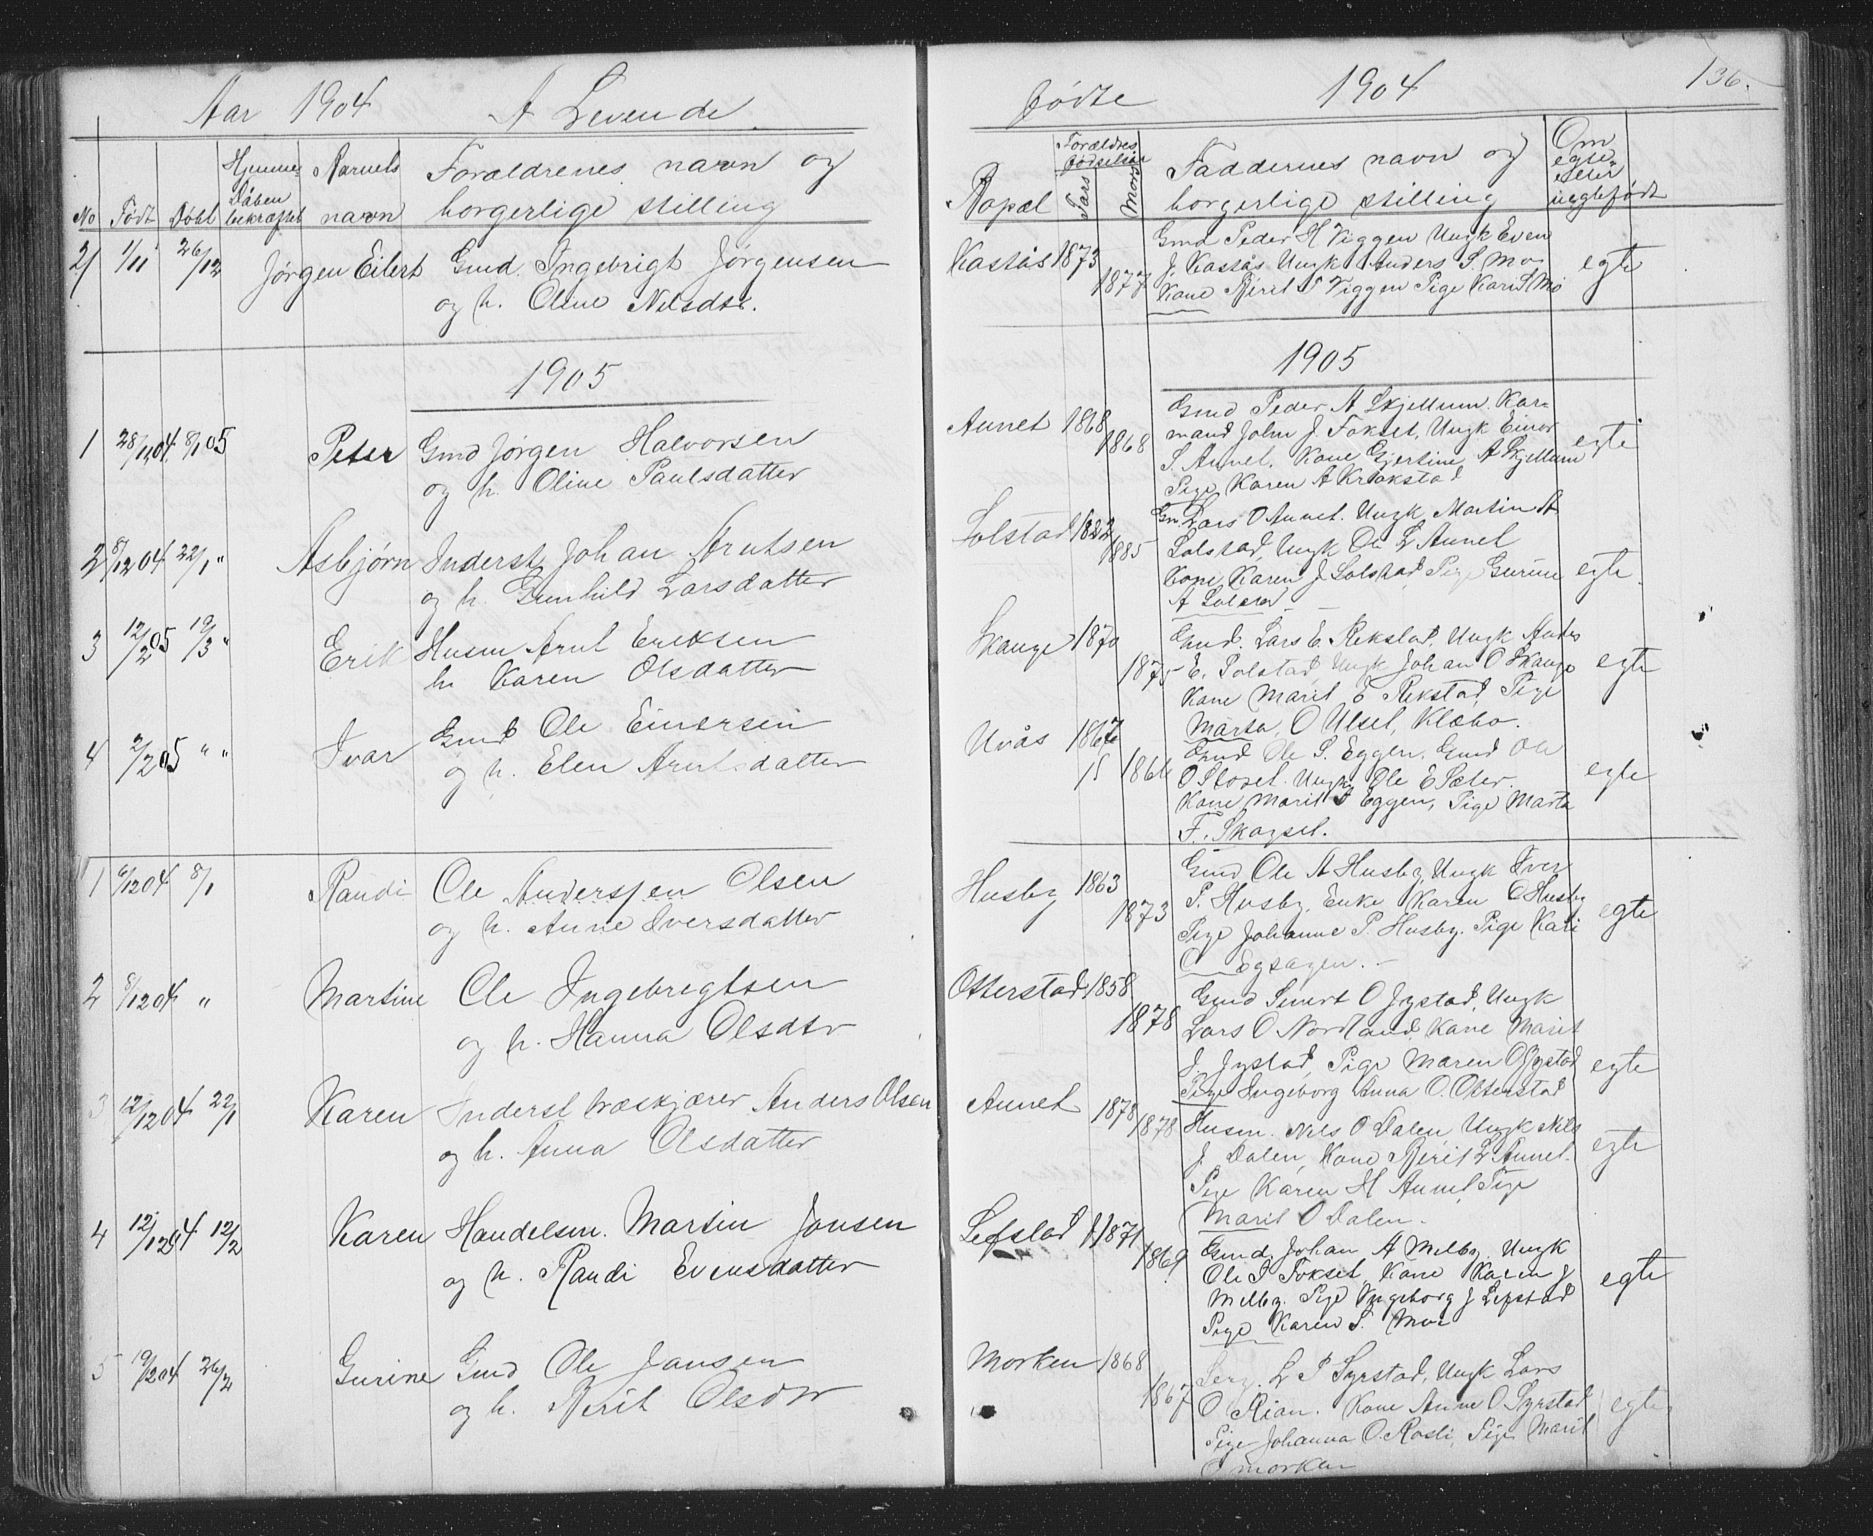 Aar 1904 A Levende
No Født Døbt Hjemme- Barnets Forældrenes navn og
Dåben
bekræftet navn borgerlige stilling
21 1/11 26/12 Jørgen Eilert Gmd. Ingebrigt Jørgensen
og h. Oline Nilsdtr.
1905
1 28/11 04 8/1 05 Peter Gmd Jørgen Halvorsen
og h. Oline Paulsdatter
2 8/12 04 22/1 " Asbjørn Inderst Johan Arntsen
og h. Gunhild Larsdatter
3 12/2 05 19/3 " Erik Husm Arnt Eriksen
h. Karen Olsdatter
4 2/2 05 " " Ivar Gmd Ole Einersen
og h. Elen Arntsdatter
1 6/12 04 8/1 Randi Ole Anderssen Olsen
og h. Anne Iversdatter
2 8/12 04 " Martine Ole Ingebregtsen
og h. Hanna Olsdtr
3 12/12 04 22/1 Karen Inderst Træskjærer Anders Olsen
og h. Anna Olsdatter
4 12/12 04 12/2 Karen Handelsm. Martin Jonsen
og h. Randi Evensdatter
5 19/12 04 26/2 Gurine Gmd Ole Jansen
og h. Berit Olsdtr
Fødte 1904 136.
Bopæl Forældres fødselsår Fars Mors Faddernes navn og
borgerlige stilling
Om egte eller uegtefødt
Kastås 1873 1877 Gmd Peder H Viggen Ungk Even
J. Kastås Ungk Anders S. Mo
Kone Berit P Viggen Pige Kari S Mo egte
1905
Aunet 1868 1868 Gmd Peder A Skjellum. Kår-
mand John J. Fokset, Ungk Einar
S. Aunet. Kone Gjertine A Skjellum egte
Pige Karen A Krokstad
Solstad 1882 1885 Gm. Lars O Aunet. Ungk Martin A
Solstad, Ungk Ole L Aunet
Kone Karen J Solstad Pige Gurine egte
A Solstad
Skauge 1870 1875 Gmd. Lars E. Rekstad, Ungk Anders
E. Solstad, Ungk Johan O Skauge egte
Kone Marit O Rekstad, Pige
Marta O Ulset, Klæbo.
Uvås 1867 1866 Gmd Ole S. Eggen. Gmd Ole
O Storet. Ungk Ole E Sæter. egte
Kone Marit S Eggen, Pige Marta
F. Skogset.
Husby 1863 1873 Gmd Ole A Husby, Ungk Iver
P. Husby, Enke Karen O Husby egte
Pige Johanne P. Husby. Pige Kari
O Egsagen.
Otterstad 1858 1878 Gmd Sivert O Jystad, Ungk
Lars O Nordland, Kone Marit
J. Jystad, Pige Maren O Jystad egte
Pige Ingeborg Anna O. Otterstad
Aunet 1878 1878 Husm. Nils O Dalen Ungk Nils
J. Dalen, Kone Berit L Aunet. egte
Pige Karen H Aunet, Pige
Marit O Dalen.
Lefstad 1871 1869 Gmd. Johan A Melby. Ungk
Ole P Fokset, Kone Karen J
Melby. Pige Ingeborg J Lefstad egte
Pige Karen S. Moe
Morken 1868 1867 Serg. L P Syrstad, Ungk Lars
O Rian. Kone Anne O Syrstad egte
Pige Johanna O. Rosli, Pige Marit
O Morken